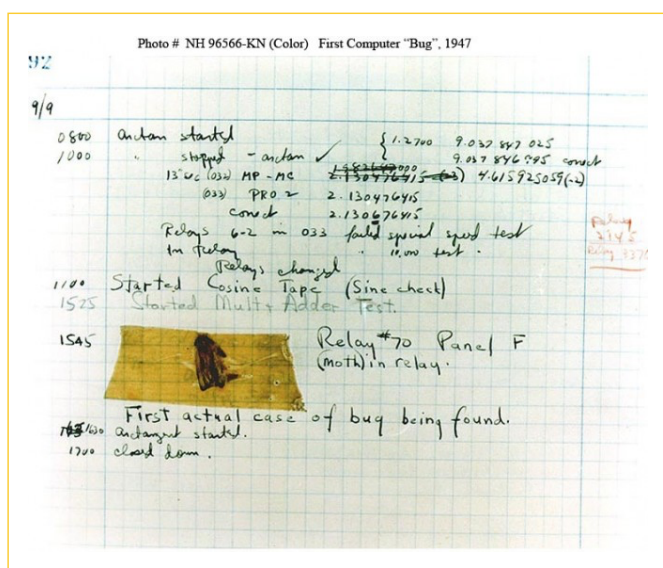 Photo # NH 96566-KN (Color) First Computer "Bug", 1947
92
9/9
0800 antan started
1000 " stopped - antan ✓
{ 1.2700 9.037 847 025
9.037 846 995 correct
13"uc (032) MP - MC 2.130476415 4.615925059(-2)
(033) PRO 2 2.130476415
correct 2.130676415
Relays 6-2 in 033 failed special speed test
In Relay " 10.000 test .
Relays changed
Relay
1100 Started Cosine Tape (Sine check)
1525 Started Mult + Adder Test.
1545 Relay #70 Panel F
(moth) in relay.
First actual case of bug being found.
1630 antangent started.
1700 closed down.